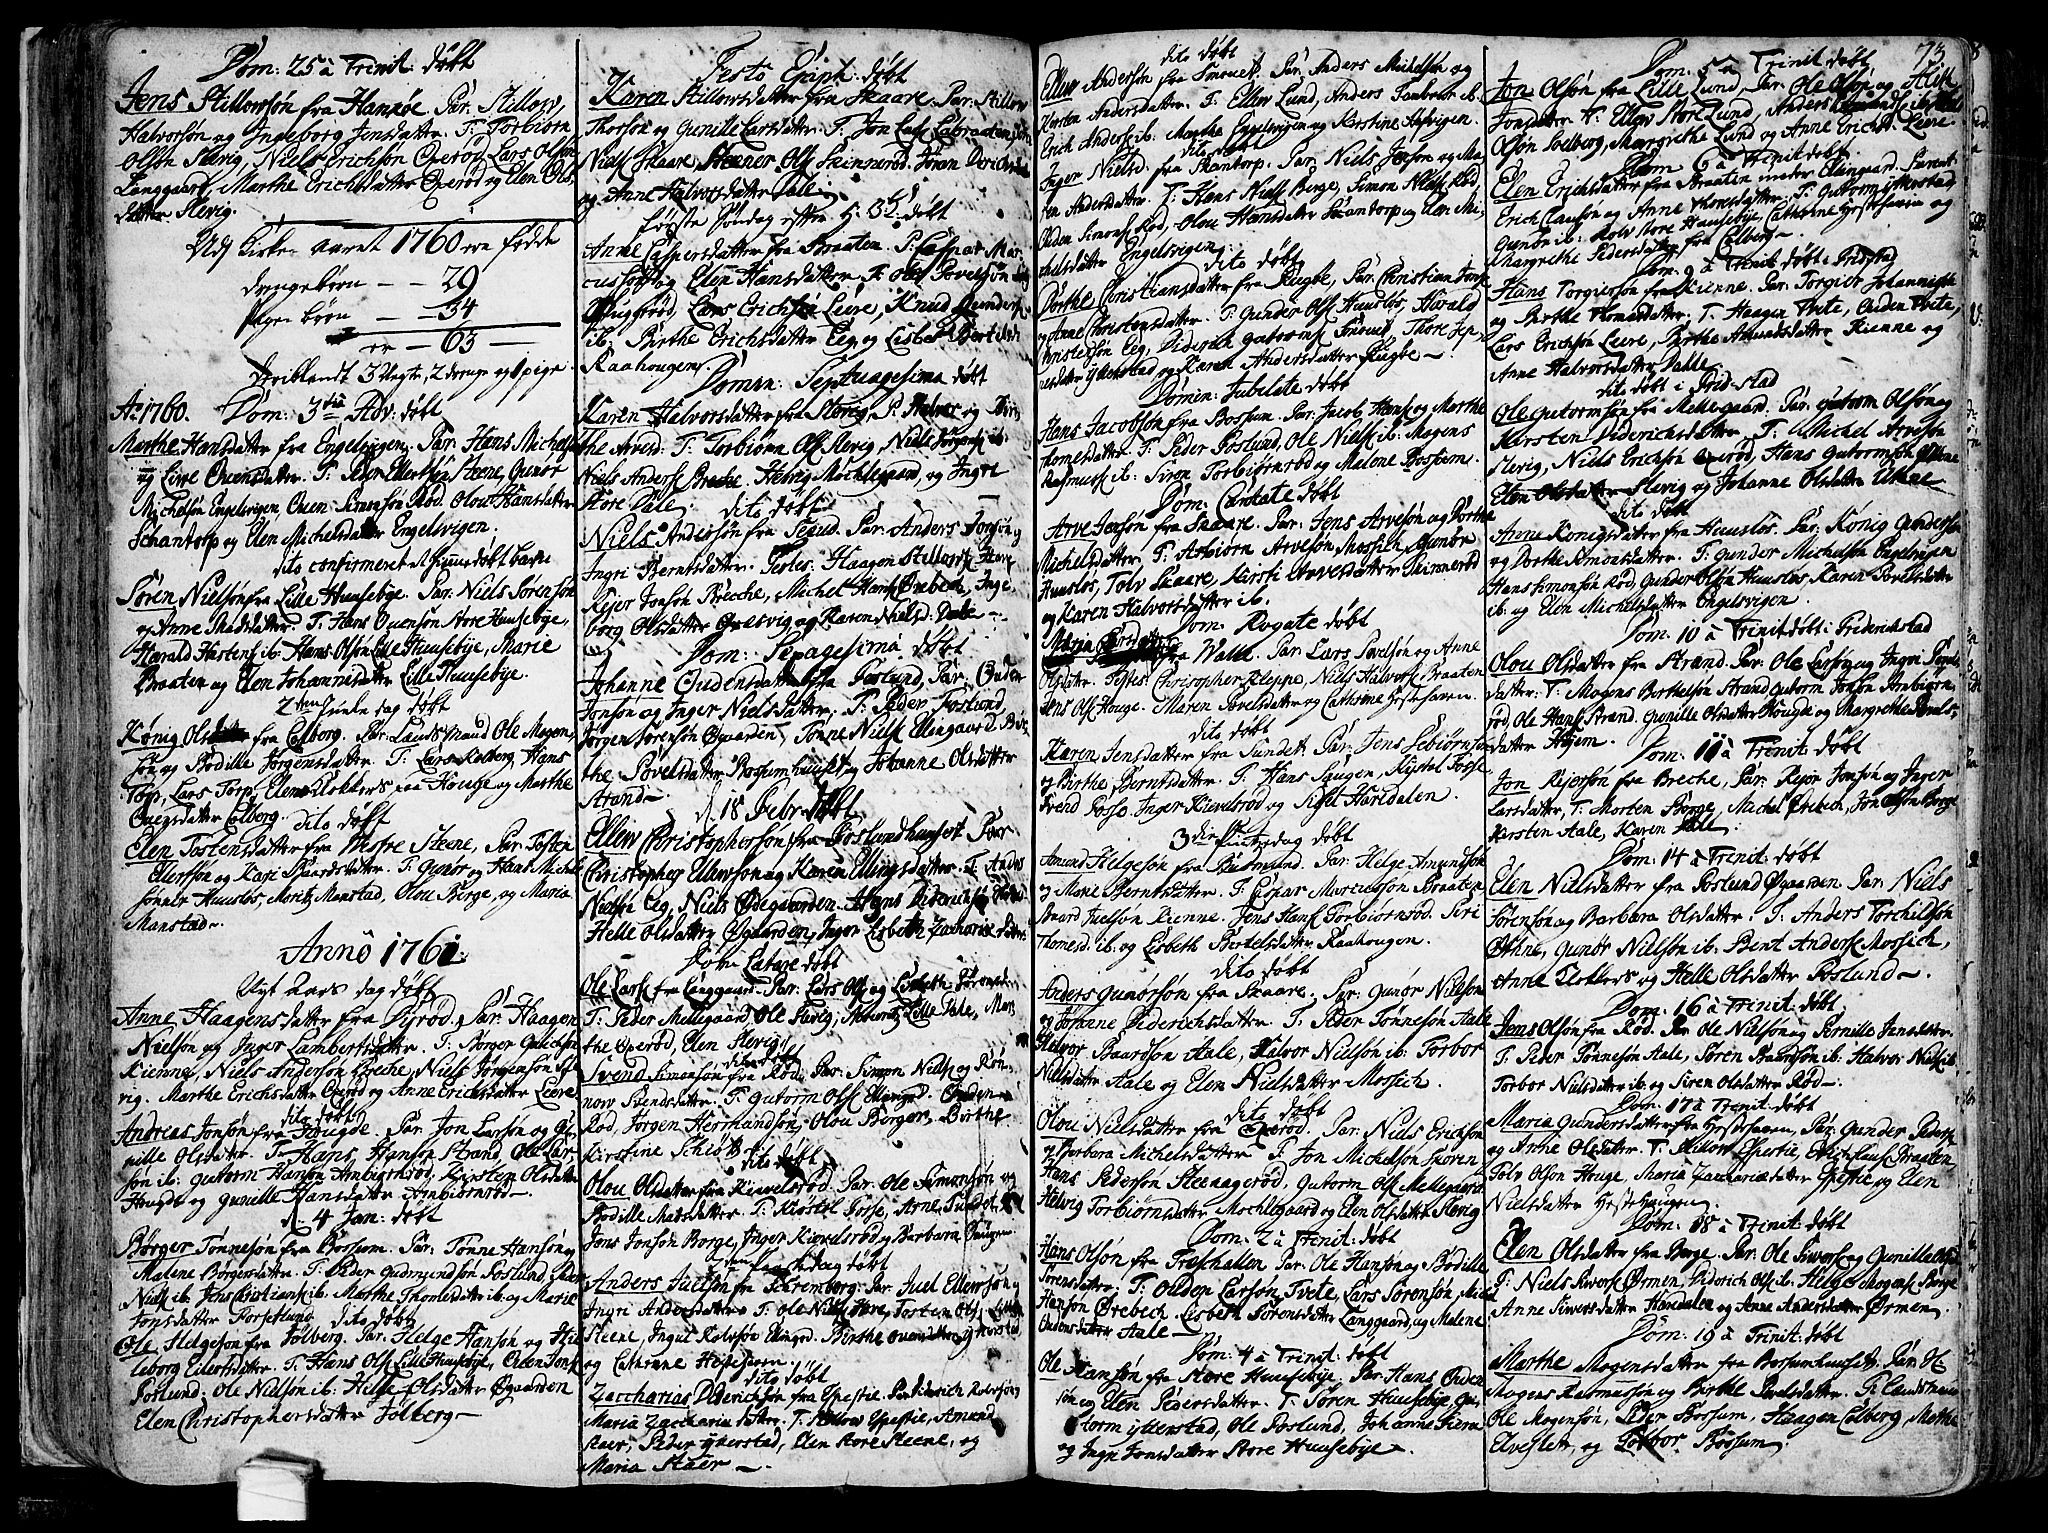 Dom: 25 à Trinit: døbt
Jens Stillowsøn fra Hankøe Par: Stillow
Halvorsøn og Ingeborg Jensdatter. T: Torbiørn
Olsøn Slevig, Niels Erichsøn Ørerød, Lars Olsøn
Langgaard, Marthe Erichsdatter Ørerød og Elen Ols
datter Slevig.
Udj Kirke Aaret 1760 ere fødde
Drengebørn - - 29
Pigebørn - - 34
er - 63 -
Deriblandt 3 Uægte, 2 drenge og 1 pige.
Ao 1760. Dom: 3tia Adv: døbt
Marthe Hansdatter fra Engelsvigen. Par: Hans Michelsøn
og Live Ouensdatter. T: Peder Ellefsøn Steene, Gunør
Michelsøn Engelsvigen, Ouen Simonsøn Rød. Olou Hansdatter
Schantorp og Elen Michelsdatter Engelsvigen.
dito confirmeret et hiemmedøbt barn
Søren Nielsøn fra Lille Huusebye. Par: Niels Sørensøn
og Anne Madsdatter. T: Hans Ouensøn Store Huusebye,
Harald Hastens ib: Hans Olsøn Lille Huusebye, Marie
Braaten og Elen Johannisdatter Lille Huusebye.
2den Juule dag døbt
König Ols fra Colberg. Par: Landsmand Ole Mogen
søn og Bodille Jørgensdatter. T: Lars Kolberg, Hans
Torp, Lars Torp, Elen Klokkers paa Houge og Marthe
Ouensdatter Colberg.
dito døbt
Elen Tostensdatter fra Vestre Steene, Par: Tosten
Ellefsøn og Kari Baardsdatter. T: Gunør og Hans Michel
sønner Huusløs, Moritz Manstad, Olou Borge, og Maria
Manstad.
Anno 1761.
Nyt Aars dag døbt
Anne Haagensdatter fra Øyrød. Par: Haagen
Nielsøn og Inger Lambertsdatter. T: Borger
Kienne, Niels Andersøn Breche, Niels Jørgensøn Sle
vig. Marthe Erichsdatter Ørerød og Anne Erichsdatter Leere.
dito døbt
Andreas Jonsøn fra Hougde. Par: Jon Larsøn og Gu
nille Olsdatter. T: Hans Hansøn Strand, Ole Lar
søn ib: Gutorm Hansøn Ambiørnrød, Kirsten Olsdatter
Hougde og Gunille Hansdatter Ambiørnrød.
d 4 Jan: døbt
Børger Tønnesøn fra Bossum. Par: Tønne Hansøn og
Malene Børgersdatter. T: Peder Gudmundsøn Foslund,
Niels ib: Jens Christians ib: Marthe Thomesdatter ib: og Marie
Jonsdatter Forsetlund.
dito døbt
Ole Helgesøn fra Jølberg. Par: Helge Hansøn og Hil
leborg Eilertsdatter. T: Hans Ols Lille Huusebye, Ouden Jons
Foslund: Ole Nielsøn ib: Hilje Olsdatter Øgaarden
Elen Christophersdatter Jølberg
Festo Epiph: døbt
Karen Stillowsdatter fra Skaare. Par: Stillow
Thorsøn og Gunille Larsdatter. T: Jon Lars Labraaten,
Niels Skaare, Steener Ols Skinnerød. Joran
og Anne Halvorsdatter Dale.
første Søndag efter H: 3K: døbt
Anne Caspersdatter fra Braaten. P: Caspar Mar
cussøn og Elen Hansdatter. T: Ole Povelsøn
Huugsrød, Lars Erichsøn Leere, Knud Gunders
ib: Birthe Erichsdatter Eeg og Lisbet Bertelsd
Raahougen.
Domin: Septuagesima døbt
Karen Halvorsdatter fra Slevig. P: Halvor og Bir
the Arvesd: T: Torbiørn Ols Slevig, Niels Jørgens ib:
Niels Anders Breche, Helvig Mochlegaard, og Ingri
Store Dale.
dito døbt
Niels Andersøn fra Teaud. Par: Anders
Ingri Berntsdatter. Testes: Haagen Stillows
Rejer Jonsøn Breche, Michel Hans Ørebech, Inge
borg Olsdatter Gresvig og Karen Nielsd: Dale
Dom: Sexagesima døbt
Johanne Oudensdatter fra Foslund, Par: Ouden
Jonsøn og Inger Nielsdatter. T: Peder Foslund,
Jørgen Sørensøn Øgaarden, Tønne Niels Elingaard Bir
the Povelsdatter Bossumhuuset og Johanne Olsdatter
Strand.
d 18 Febr: døbt
Ellew Christophersøn fra Foslundhuuset. Par:
Christopher Ellewsøn og Karen Ellingsdatter. T: Anders
Nielsøn Eeg, Niels Ødegaarden. Hans Diderichsøn
Helle Olsdatter Øgaarden, Inger Lisbeth Zachariædatter
Dom: Lætare døbt
Ole Lars fra Langgaard. Par: Lars Ols og Lisbeth Sørensdatter
T: Peder Mellegaard Ole Slevig, Mouritz Lille Dale, Mar
the Ørerød, Elen Slevig.
dito døbt
Svend Simonsøn fra Rød. Par: Simon Niels og Røn
now Svendsdatter. T: Gutorm Ols Elingrd. Ouden
Rød, Jørgen Hermandsøn. Olou Borger. Birthe
Kirstine Schiøtt.
dito døbt
Olou Olsdatter fra Kievelsrød. Par: Ole Simonsøn og
Bodille Madsdatter. T: Kiøstel Fosse, Arne
Jons Jonsøn Borge, Inger Kievelsrød og Barbara Haugen
2den Paaskedag døbt
Anders Juelsøn fra Skremborg. Par: Juel Ellewsøn og
Ingri Andersdatter. T: Ole Niels Torten Ols
Steene, Ingus Rolvsøe Elingrd. Birthe
og Cathrine Hestehaven.
dito døbt
Zaccharias Diderichsøn fra Epestie. Par: Diderich Rolvsøn og
Maria Zacchariadatter. T: Stillow Epestie, Amund
Staer, Peder Ytterstad, Elen Store Steene, og
Maria Staer
dito døbt
Ellew Andersøn fra Smouet. Par: Anders Michelsøn og
Kirsten Andersdatter. T: Ellew Lund, Anders ib.
Erich Anders ib. Marthe Engelsvigen og Kirstine Engelsvigen.
dito døbt
Inger Nielsd. fra Skantorp. Par: Niels Jensøn og Ma
ren Andersdatter. T: Hans Niels Berge, Simon Niels Rød,
Ouden Simons Rød, Olou Hansdatter Skantorp og Elen Mi
chelsdatter Engelsvigen.
dito døbt
Dorthe Christiansdatter fra Rugbe, Par: Christian Jons
og Anne Christensdatter. T: Gunder Ols Huusløs, Harald
Christensøn Eeg, Diderich Gutorms, Thore Jen
nesdatter Ytterstad og Karen Andersdatter Rugbe.
Domin: Jubilate døbt
Hans Jacobsøn fra Bossum. Par: Jacob Hans og Marthe
Thomesdatter. T: Peder Foslund, Ole Niels ib: Mogens
Rasmus ib. Siren Torbiørnsrød og Malene Bossum.
Dom: Cantate døbt
Arve Jensøn fra Skaare. Par: Jens Arvesøn og Dorthe
Michelsdatter. T: Asbiørn Arvesøn Mossich, Gunør
Huusløs, Tolv Skaare, Kirsti Arvesdatter Skinnerød
og Karen Halvorsdatter ib.
Dom: Rogate døbt
Maria Larsdatter fra Walle. Par: Lars Povelsøn og Anne
Olsdatter. Testes: Christopher Kleppe, Niels Halvors Braaten
Jens Ols Houge. Maren Povelsdatter og Cathrine Hestehaven.
dito døbt
Karen Jensdatter fra Sundet. Par: Jens Sebiørnsøn
og Birthe Berntsdatter. T: Hans Haugen, Kiøstel Fosse,
Svend Fosse, Inger Kievelsrød og Sissel Harldalen.
3die Pintzedag døbt
Amund Helgesøn fra Raamund. Par: Helge Amundsøn
og Marie Berntsdatter. T: Caspar Marcussøn Braaten
Baard Juelsøn Kienne. Jens Hans Torbiørnsrød. Siri
Thomesd. ib. og Lisbeth Bertelsdatter Raahougen.
dito døbt
Anders Gunørsøn fra Skaare. Par: Gunør Nielsøn
og Joranne Diderichsdatter. T: Peder Tønnesøn Aale
Halvor Baardsøn Aale, Halvor Nielsøn ib: Torbor
Nielsdatter Aale og Elen Nielsdatter Mossich.
dito døbt
Olou Nielsdatter fra Ørerød. Par: Niels Erichsøn
og Barbara Michelsdatter. T: Jon Michelsøn Sporen
Hans Pedersøn Steenagerød, Gutorm Ols Mellegaard
Helvig Torbiørnsdatter Mochlegaard og Elen Olsdatter Slevig
Dom: 2 à Trinit: døbt
Hans Olsøn fra Treschallen. Par: Ole Hansøn og Bodille
Sørensdatter. T: Ouldop Larsøn Tvete, Lars Sørensøn Michel
Hansøn Ørebech. Lisbeth Sørensdatter Langgaard, og Malene
Oudensdatter Aale
Dom: 4 à Trinit: døbt
Ole Hansøn fra Store Huusebye. Par: Hans Ouden
søn og Elen Pedersdatter. T: Søren Huusebye, Gu
torm Ytterstad, Ole Foslund, Johanne
og Ingri Jonsdatter Store Huusebye.
73
Dom: 5 à Trinit: døbt
Jon Olsøn fra Lille Lund, Par: Ole Olsøn og
Jonsdatter. T: Ellew Store Lund, Anders
Olsøn Soelberg, Margrethe Lund og Anne Erichsd. Leere
Dom: 6 à Trinit: døbt
Elen Erichsdatter fra Braaten under Elingaard. Parent:
Erich Clausøn og Anne Thomesdatter. T: Gutorm Ytterstad,
Gunør ib: Rolv Store Huusebye, Cathrine Hestehaven og
Margrethe Pedersdatter fra Colberg
Dom: 9 à Trinit: døbt i Fridstad
Hans Torgiersøn fra Kienne. Par: Torgier Johannissøn
og Birthe Thomesdatter. T: Haagen Tvete, Ouden Tvete,
Lars Erichsøn Leere, Birthe Amundsdatter Kienne og
Anne Halvorsdatter Dalle.
dito døbt i Frid-stad
Ole Gutormsøn fra Mellegaard. Par: Gutorm Olsøn og
Kirsten Diderichsdatter. T: Michel Arvesøn
Slevig, Niels Erichsøn Ørerød, Hans Gutormsøn
Elen Olsdatter Slevig og Johanne Olsdatter
dito døbt
Anne Königsdatter fra Huusløs. Par: König Gundersøn
og Dorthe Simonsdatter. T: Gunder Michelsøn Engelsvigen
Hans Simonsøn Rød, Gunder Olsøn Huusløs Karen Povelsdatter
ib. og Elen Michelsdatter Engelsvigen.
Dom: 10 à Trinit: døbt i Friderichstad
Olou Olsdatter fra Strand. Par: Ole Larsøn og Ingri Povels
datter. T: Mogens Berthelsøn Strand, Gutorm Jonsøn Ambiørn
rød, Ole Hans Strand. Gunille Olsdatter Hougde og Margrethe Povels
datter Høyem.
Dom: 11 à Trinit: døbt
Jon Rejersøn fra Breche, Par: Rejer Jonsøn og Inger
Larsdatter, T: Morten Borge, Michel Ørebech, Jon Olsøn Borge
Kirsten Aale, Karen Dale.
Dom: 14 à Trinit: døbt
Elen Nielsdatter fra Foslund Øgaarden. Par: Niels
Sørensøn og Barbara Olsdatter. T: Anders Torchildsøn
Øthne, Gunør Nielsøn ib: Bent Anders Mossich,
Anne Klokkers og Helle Olsdatter Foslund
Dom: 16 à Trinit: døbt
Jens Olsøn fra Rød. Par Ole Nielsøn og Pernille Jensdatter.
T: Peder Tønnesøn Aale, Søren Baardsøn ib: Halvor Niels ib.
Torbor Nielsdatter ib. og Siren Olsdatter Rød
Dom: 17 à Trinit: døbt
Maria Gundersdatter fra Hestehaven, Par: Gunder Peders
og Anne Olsdatter. T: Stillow Epestie, Erich Claus Braaten,
Tolv Olsøn Houge, Maria Zachariædatter Epestie og Elen
Nielsdatter Hestehaugen.
Dom: 18 à Trinit: døbt
Elen Olsdatter fra Borge. Par: Ole Siwers og Gunille Olsd
T: Niels Siwers Ørmen, Diderich Ols ib. Helge Mogens Borge
Anne Siwersdatter Haredalen og Anne Andersdatter Ørmen.
Dom: 19 à Trinit: døbt
Marthe Mogensdatter fra Bossumhuuset. Par:
Mogens Rasmussøn og Birthe Povelsdatter. T: Landsmand
Ole Mogensøn, Peder Bossum, Haagen Colberg, Marthe
Elvesletten, og Torbor Bossum.